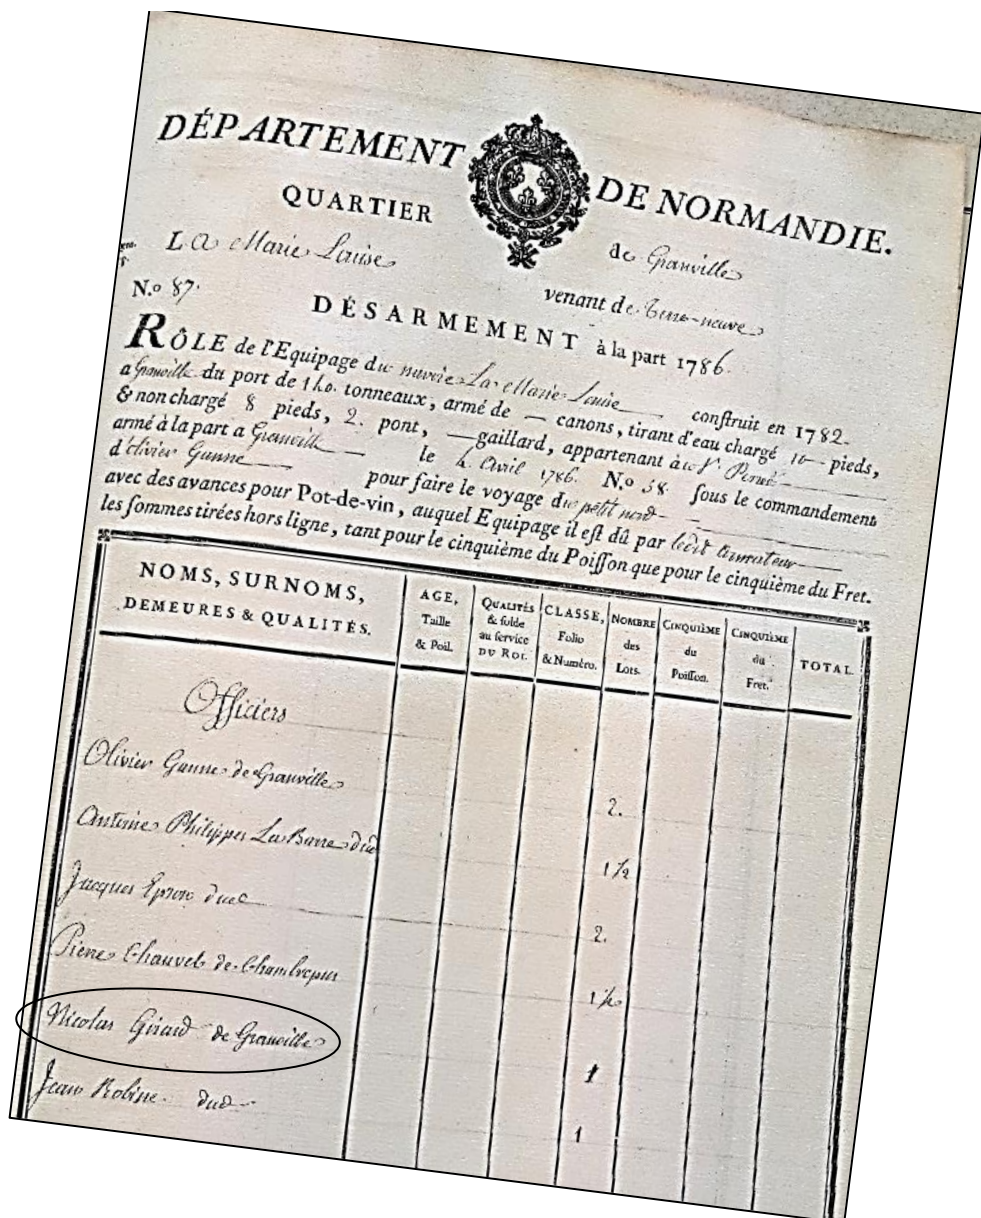 DÉPARTEMENT DE NORMANDIE.
QUARTIER de Granville
La Marie Louise venant de Terre-neuve
N.o 87.
DÉSARMEMENT à la part 1786.
RÔLE de l'Equipage du navire La Marie Louise construit en 1782.
a Granville du port de 140. tonneaux, armé de — canons, tirant d'eau chargé 10 pieds,
& non chargé 8 pieds, 2. pont, — gaillard, appartenant à
armé à la part a Granville le 4 Avril 1786. N.o 58. sous le commandement
d'olivier Ganne pour faire le voyage du petit nord
avec des avances pour Pot-de-vin, auquel Equipage il est dû par ledit armateur
les sommes tirées hors ligne, tant pour le cinquième du Poisson que pour le cinquième du Fret.
NOMS, SURNOMS,
DEMEURES & QUALITÉS.
AGE,
Taille
& Poil.
QUALITÉS
& solde
au service
DU ROI.
CLASSE,
Folio
& Numéro.
NOMBRE
des
Lots.
CINQUIÈME
du
Poisson.
CINQUIÈME
du
Fret.
TOTAL.
Officiers
Olivier Ganne de Granville 2.
Antoine Philippes La Barre dud 1 1/2
Jacques Epron dud 2.
Pierre Chauvet de Chambrepus 1 1/2
Nicolas Girard de Granville 1
Jean Robine dud 1